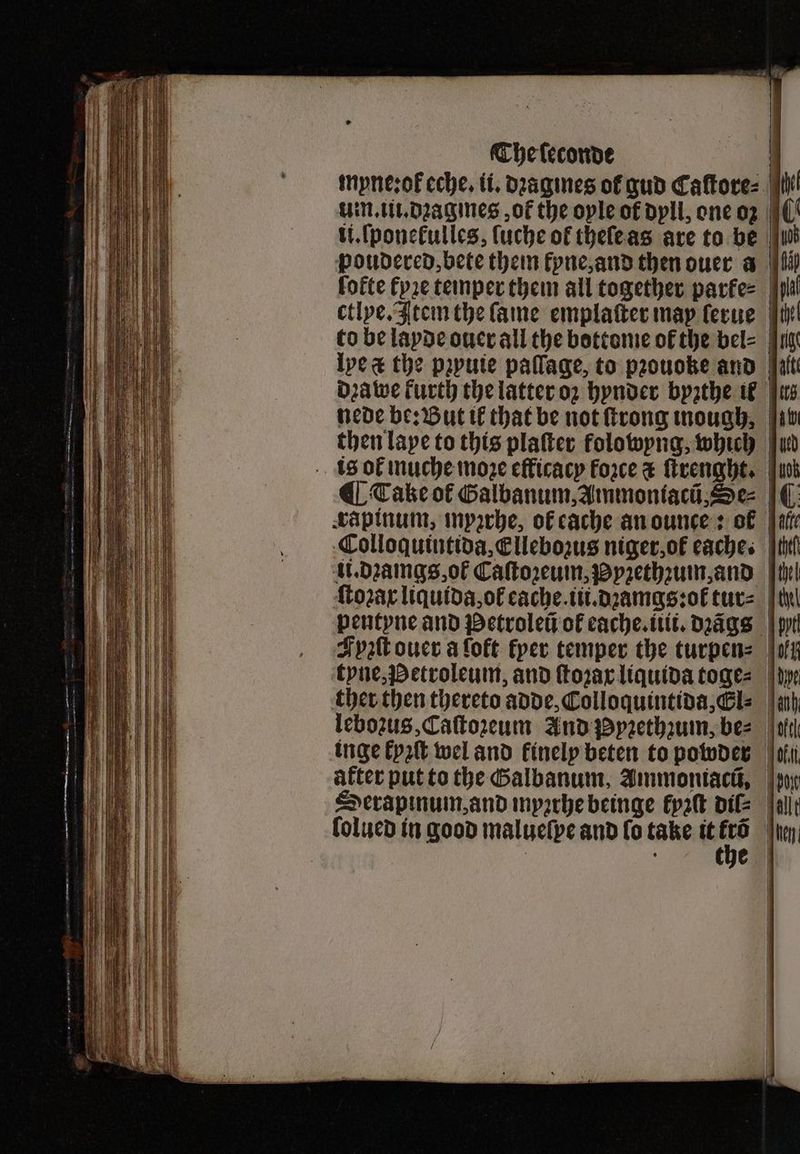 The seconde
myne:of eche. ii. dragmes of gud Castore=
um.iii.dragmes ,of the oyle of dyll, one or
ii.sponefulles, suche of these as are to be
poudered,bete them fyne,and then ouer a
softe fyre temper them all together parfe=
ctlye.Item the same emplaster may serue
to be layde ouer all the bottome of the bel=
lye & the pryuie passage, to prouoke and
drawe furth the latter or hynder byrthe if
nede be:But if that be not strong inough,
then laye to this plaster folowyng, which
is of muche more efficacy force & strenght.
¶ Take of Galbanum,Ammoniacū,Se=
rapinum, myrrhe, of eache an ounce : of
Colloquintida,Elleborus niger,of eache.
ii.dramgs,of Castoreum,Pyrethrum,and
storax liquida,of eache.iii.dramgs:of tur=
pentyne and Petroleū of eache.iiii. drāgs
Fyrst ouer a soft fyer temper the turpen=
tyne,Petroleum, and storax liquida toge=
ther then thereto adde, Colloquintida,El=
leborus,Castoreum And Pyrethrum, be=
inge fyrst wel and finely beten to powder
after put to the Galbanum, Ammoniacū,
Serapinum,and myrrhe beinge fyrst dis=
solued in good maluesye and so take it frō
the